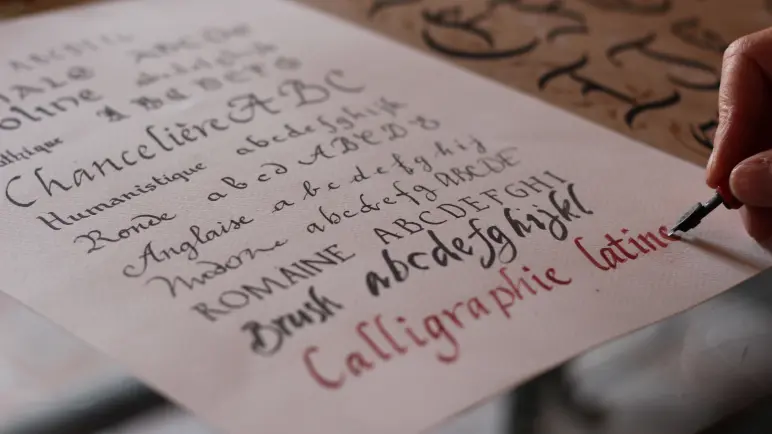 ABCDE
ABCDE
oline ABCDEFG
Chancelière ABC
Humanistique abcdefghijk
Ronde abcd ABCDB
Anglaise abcdefghij
Moderne abcdef ABCDE
ROMAINE ABCDEFGHI
Brush abcdefghijkl
Calligraphie latine